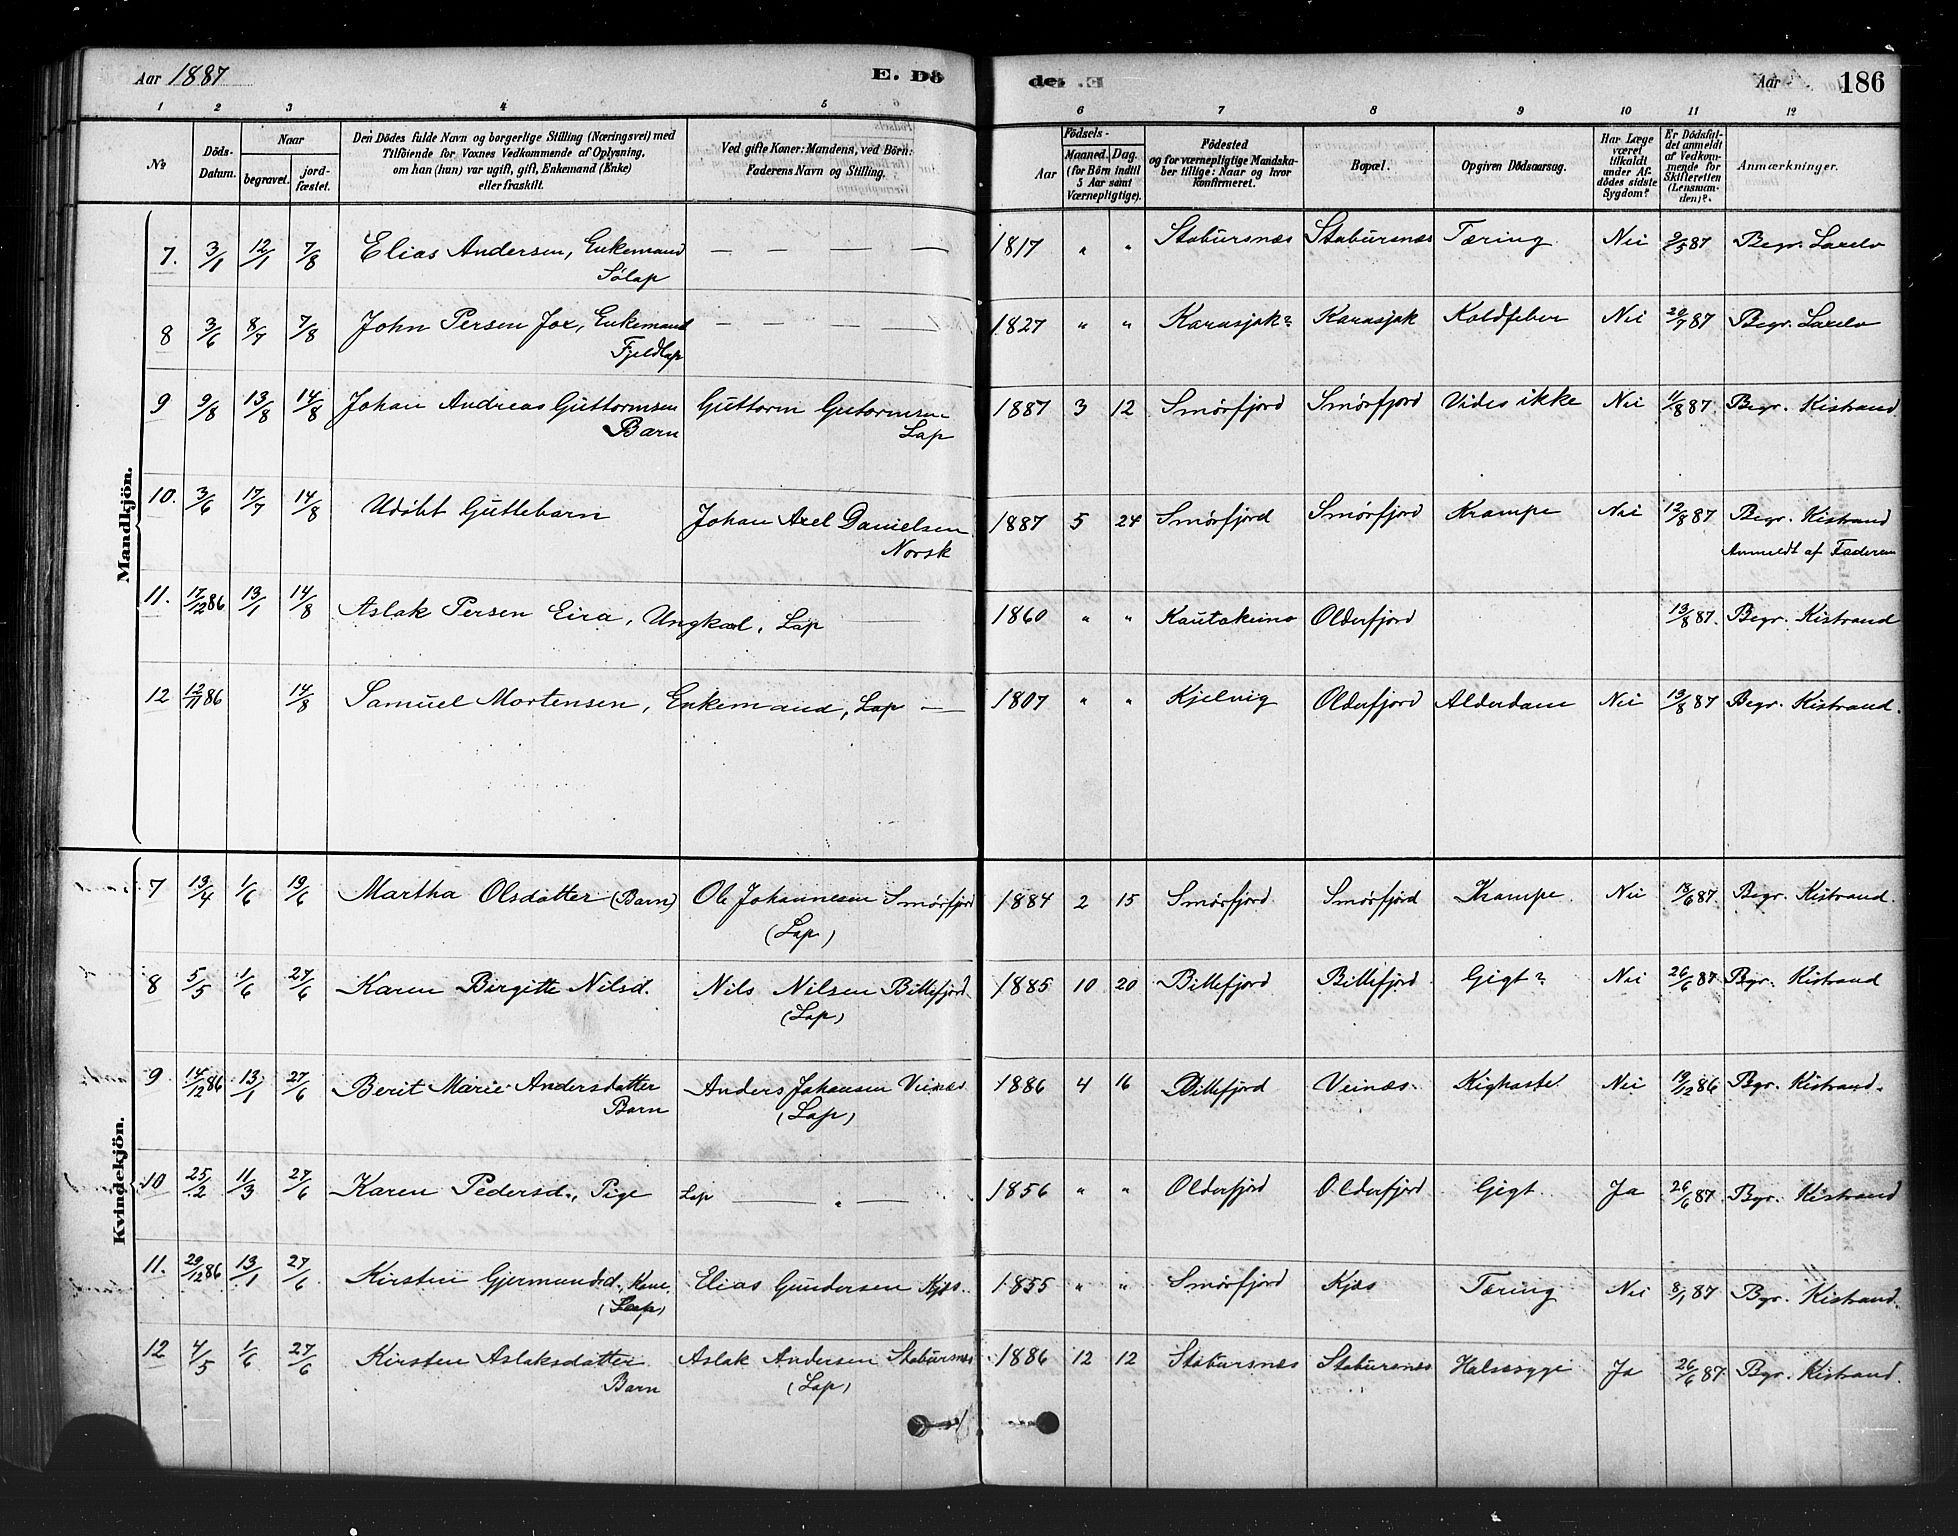 Aar 1887 E. Dö
de: Aar 186
1 2 3 4 5 6 7 8 9 10 11 12
No. Döds-Datum. Naar begravet. jordfæstet. Den Dödes fulde Navn og borgerlige Stilling (Næringsvei) med Tilföiende for Voxnes Vedkommende af Oplysning, om han (hun) var ugift, gift, Enkemand (Enke) eller fraskilt. Ved gifte Koner: Mandens, ved Börn: Faderens Navn og Stilling. Aar Födsels- Maaned. Dag. (for Börn indtil 5 Aar samt Værnepligtige). Födested og for værnepligtige Mandskaber tillige: Naar og hvor konfirmeret. Bopæl. Opgiven Dödsaarsag. Har Læge været tilkaldt under Afdödes sidste Sygdom? Er Dödsfaldet anmeldt af Vedkommende for Skifteretten (Lensmanden)? Anmærkninger.
Mandkjön.
7. 3/1 12/1 7/8 Elias Andersen, Enkemand — — — — 1817 " " Stabursnæs Stabursnæs Tæring Nei 9/5 87 Begr. Laxelv
Sølap
8 3/6 8/7 7/8 John Persen Jox, Enkemand — — — 1827 " " Karasjok? Karasjok Koldfeber Nei 20/7 87 Begr. Laxelv
Fjeldlap
9 9/8 13/8 14/8 Johan Andreas Guttormsen Guttorm Gutormsen 1887 3 12 Smørfjord Smørfjord Vides ikke Nei 11/8 87 Begr. Kistrand
Barn Lap
10. 3/6 17/7 14/8 Udöbt Guttebarn Johan Axel Danielsen 1887 5 24 Smørfjord Smørfjord Krampe Nei 12/8 87 Begr. Kistrand
Norsk Anmeldt af Faderen
11. 17/12 86 13/1 14/8 Aslak Persen Eira, Ungkarl, Lap — 1860 " " Kautokeino Olderfjord 13/8 87. Begr. Kistrand
12 12/11 86 14/8 Samuel Mortensen, Enkemand, Lap — 1807 " " Kjelvig Olderfjord Alderdom Nei 13/8 87 Begr. Kistrand.
Kvindekjön.
7 13/4 1/6 19/6 Martha Olsdatter (Barn) Ole Johannesen Smørfjord 1884 2 15 Smørfjord Smørfjord Krampe. Nei 18/6 87 Begr. Kistrand.
(Lap)
8 5/5 1/6 27/6 Karen Birgitte Nilsd. Nils Nilsen Billefjord. 1885 10 20 Billefjord Billefjord Gigt? Nei 26/6 87 Bgr. Kistrand
(Lap)
9 14/12 86 13/1 27/6 Berit Marie Andersdatter Anders Johansen Veinæs 1886 4 16 Billefjord Veinæs. Kighoste Nei 19/12 86 Bgr. Kistrand.
Barn (Lap)
10 25/2 11/3 27/6 Karen Pedersd., Pige Lap — " — 1856 " " Olderfjord Olderfjord Gigt Ja 26/6 87 Bgr. Kistrand
11. 29/12 86 13/1 27/6 Kirsten Gjermundsd., Kone. Elias Gundersen Kjæs. 1855 " " Smørfjord Kjæs Tæring Nei 8/1 87 Bgr. Kistrand.
(Lap)
12 4/5 1/6 27/6 Kirsten Aslaksdatter Aslak Andersen Stabursnæs 1886 12 12 Stabursnæs Stabursnæs Halssyge Ja 26/6 87 Bgr. Kistrand.
Barn (Lap)